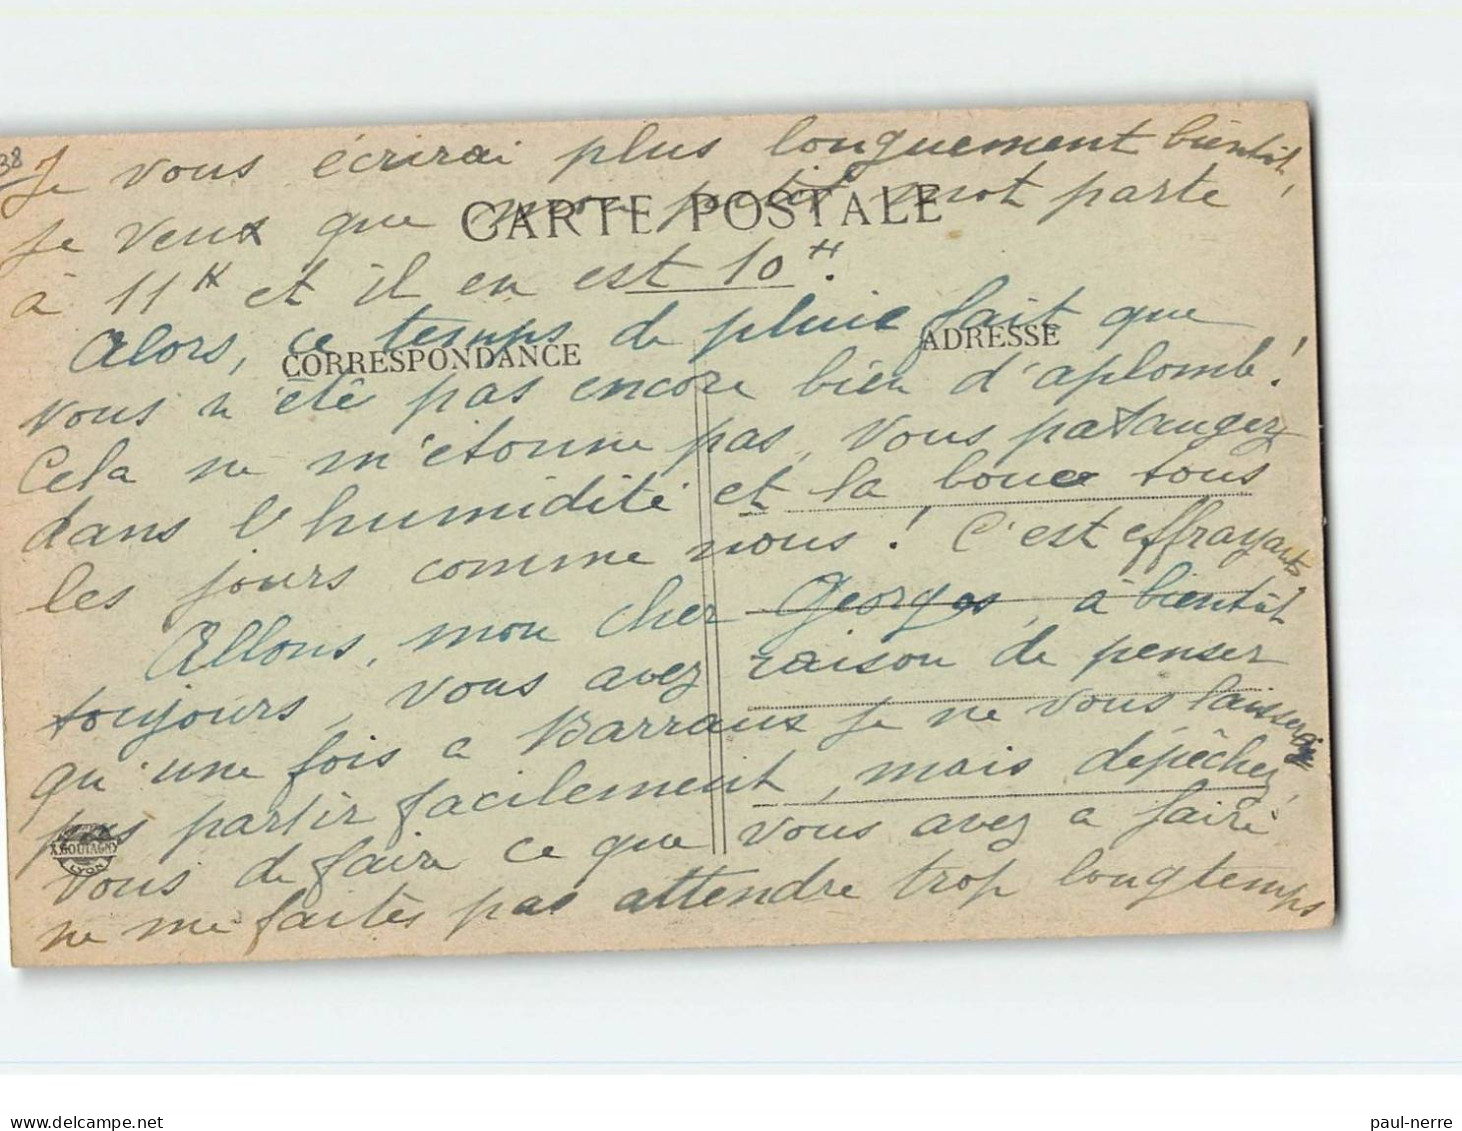 38
Je vous écrirai plus longuement bientôt,
CARTE POSTALE
je veux que mon petit mot parte
à 11H et il en est 10H.
Alors, ce temps de pluie fait que
CORRESPONDANCE
ADRESSE
vous n'étè pas encore bien d'aplomb!
Cela ne m'étonne pas, vous pataugez
dans l'humidité et la boue tous
les jours comme nous! C'est effrayant.
Allons, mon cher Georges, à bientôt
toujours, vous avez raison de penser
qu'une fois a Barraux je ne vous laisserai
pas partir facilement, mais dépêchez,
A. GOUTAGNY
LYON
vous de faire ce que vous avez a faire
ne me faites pas attendre trop longtemps
paul-nerre